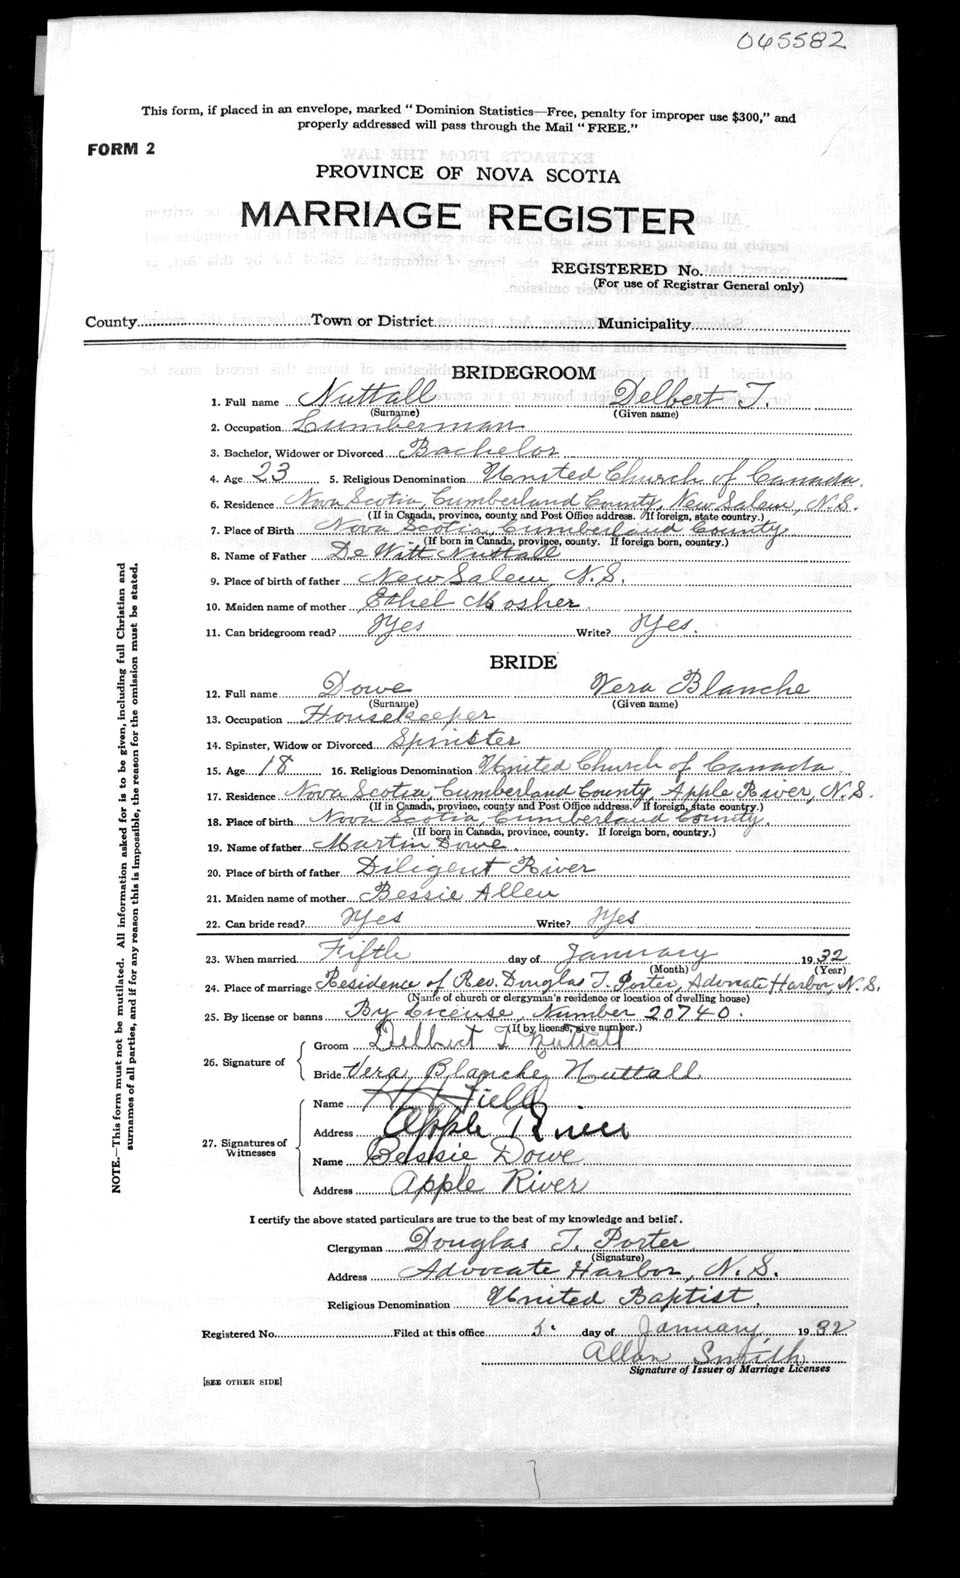 065582
This form, if placed in an envelope, marked "Dominion Statistics—Free, penalty for improper use $300," and
properly addressed will pass through the Mail "FREE."
FORM 2
PROVINCE OF NOVA SCOTIA
MARRIAGE REGISTER
REGISTERED No.
(For use of Registrar General only)
County Town or District Municipality
BRIDEGROOM
1. Full name Nuttall Delbert T.
(Surname) (Given name)
2. Occupation Lumberman
3. Bachelor, Widower or Divorced Bachelor
4. Age 23 5. Religious Denomination United Church of Canada.
6. Residence Nova Scotia, Cumberland County, New Salem, N.S.
(If in Canada, province, county and Post Office address. If foreign, state country.)
7. Place of Birth Nova Scotia, Cumberland County
(If born in Canada, province, county. If foreign born, country.)
8. Name of Father De Witt Nuttall
9. Place of birth of father New Salem, N.S.
10. Maiden name of mother Ethel Mosher
11. Can bridegroom read? Yes Write? Yes.
BRIDE
12. Full name Dowe Vera Blanche
(Surname) (Given name)
13. Occupation Housekeeper
14. Spinster, Widow or Divorced Spinster
15. Age 18 16. Religious Denomination United Church of Canada
17. Residence Nova Scotia, Cumberland County, Apple River, N.S.
(If in Canada, province, county and Post Office address. If foreign, state country.)
18. Place of birth Nova Scotia, Cumberland County.
(If born in Canada, province, county. If foreign born, country.)
19. Name of father Martin Dowe.
20. Place of birth of father Diligent River
21. Maiden name of mother Bessie Allen
22. Can bride read? Yes Write? Yes
23. When married Fifth day of January 1932
(Month) (Year)
24. Place of marriage Residence of Rev. Douglas T. Porter, Advocate Harbor, N.S.
(Name of church or clergyman's residence or location of dwelling house)
25. By license or banns By License, Number 20740.
(If by license, give number.)
26. Signature of
Groom Delbert T Nuttall
Bride Vera Blanche Nuttall
27. Signatures of
Witnesses
Name Field
Address Apple River
Name Bessie Dowe
Address Apple River
I certify the above stated particulars are true to the best of my knowledge and belief.
Clergyman Douglas T. Porter
(Signature)
Address Advocate Harbor, N.S.
Religious Denomination United Baptist.
Registered No. Filed at this office 5. day of January 1932
Allan Smith
Signature of Issuer of Marriage Licenses
[SEE OTHER SIDE]
NOTE.—This form must not be mutilated. All information asked for is to be given, including full Christian and
surnames of all parties, and if for any reason this is impossible, the reason for the omission must be stated.